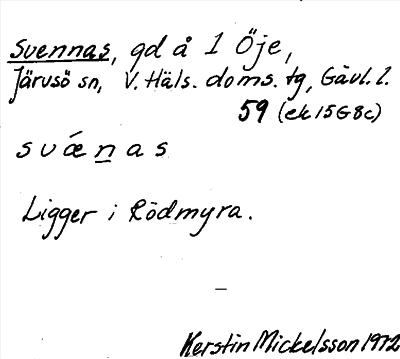 Svennas, gd å 1 Öje,
Järvsö sn, V. Häls. doms. tg, Gävl. l.
59 (ek 15G8c)
svǽnas
Ligger i Rödmyra.
–
Kerstin Mickelsson 1972